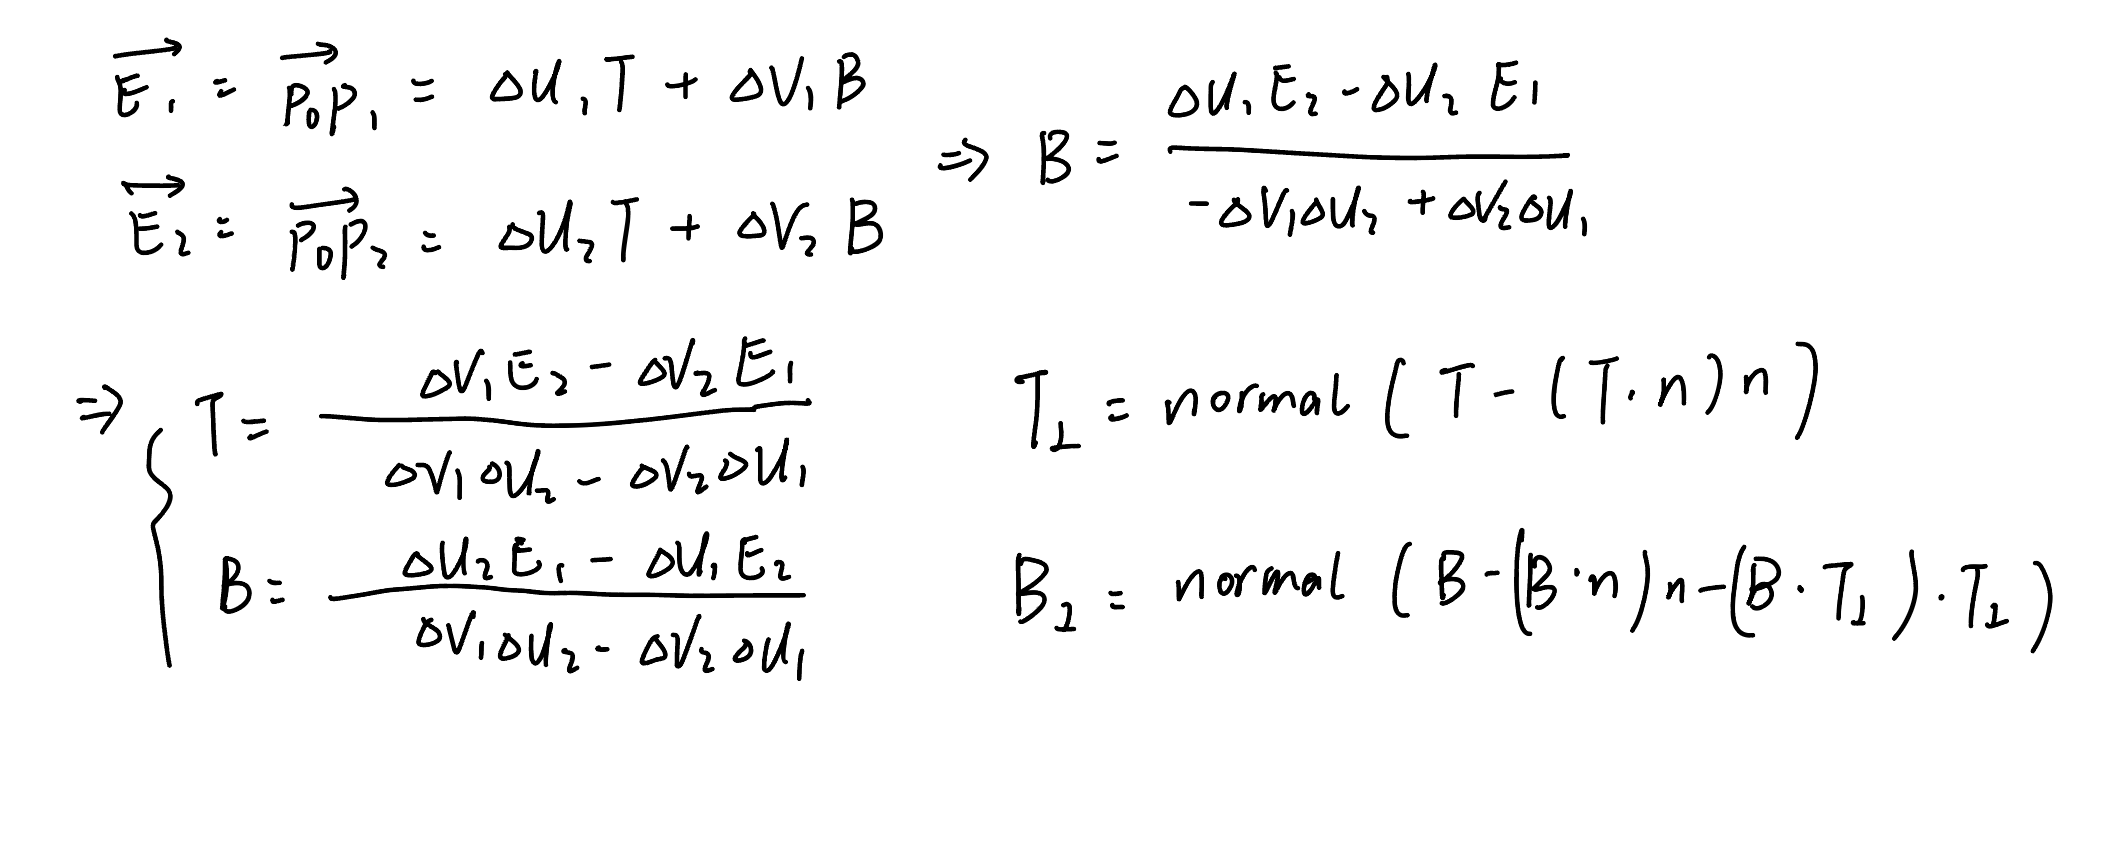 E₁⃗ = P₀P₁⃗ = ΔU₁T + ΔV₁B
E₂⃗ = P₀P₂⃗ = ΔU₂T + ΔV₂B
⇒ B = (ΔU₁E₂ - ΔU₂E₁) / (-ΔV₁ΔU₂ + ΔV₂ΔU₁)
⇒ { T = (ΔV₁E₂ - ΔV₂E₁) / (ΔV₁ΔU₂ - ΔV₂ΔU₁)
B = (ΔU₂E₁ - ΔU₁E₂) / (ΔV₁ΔU₂ - ΔV₂ΔU₁)
T⊥ = normal (T - (T·n)n)
B⊥ = normal (B - (B·n)n - (B·T⊥)·T⊥)